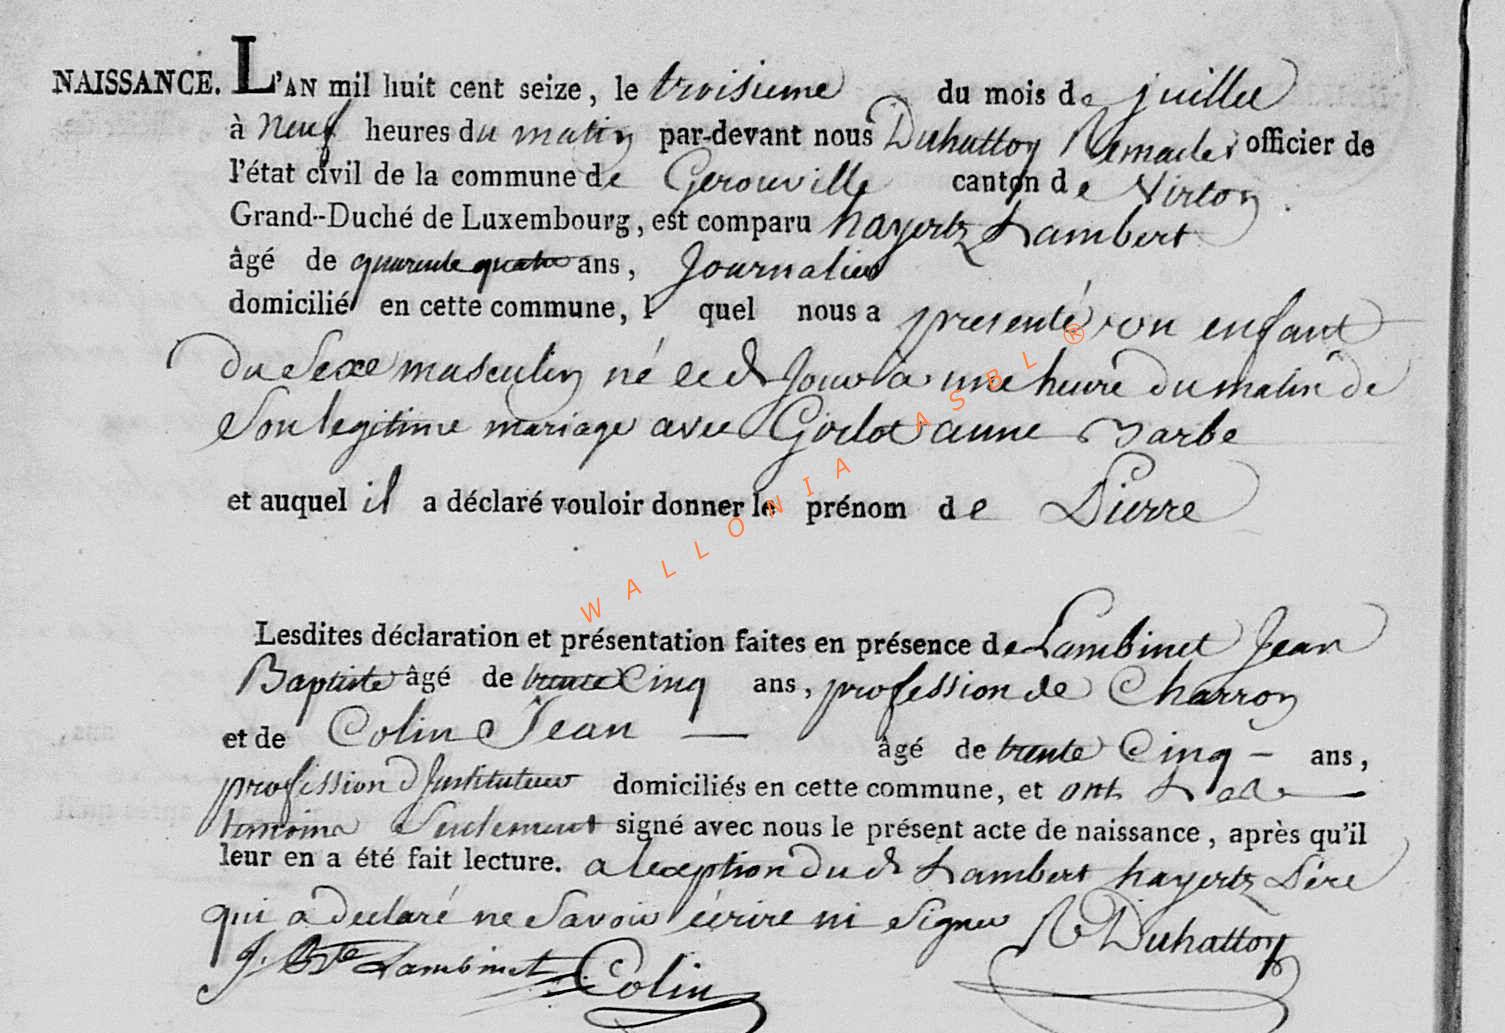 NAISSANCE. L'AN mil huit cent seize, le troisieme du mois de juillet
à neuf heures du matin par-devant nous Duhattoy Remacle officier de
l'état civil de la commune de Gerouville canton de Virton
Grand-Duché de Luxembourg, est comparu hayertz Lambert
âgé de quarente quatre ans, Journalier
domicilié en cette commune, l quel nous a presenté un enfant
du Sexe masculin né le d Jour a une heure du matin de
Son legitime mariage avec Girlot anne Barbe
et auquel il a déclaré vouloir donner le prénom de Pierre
Lesdites déclaration et présentation faites en présence de Lambinet Jean
Baptiste âgé de trente Cinq ans, profession de Charron
et de Colin Jean — âgé de trente Cinq — ans,
profession d'Instituteur domiciliés en cette commune, et ont
temoins Seulement signé avec nous le présent acte de naissance, après qu'il
leur en a été fait lecture. a lexeption du d Lambert hayertz Pere
qui a declaré ne Savoir écrire ni Signer R Duhattoy
J. Bte Lambinet Colin
WALLONIA ASBL ®